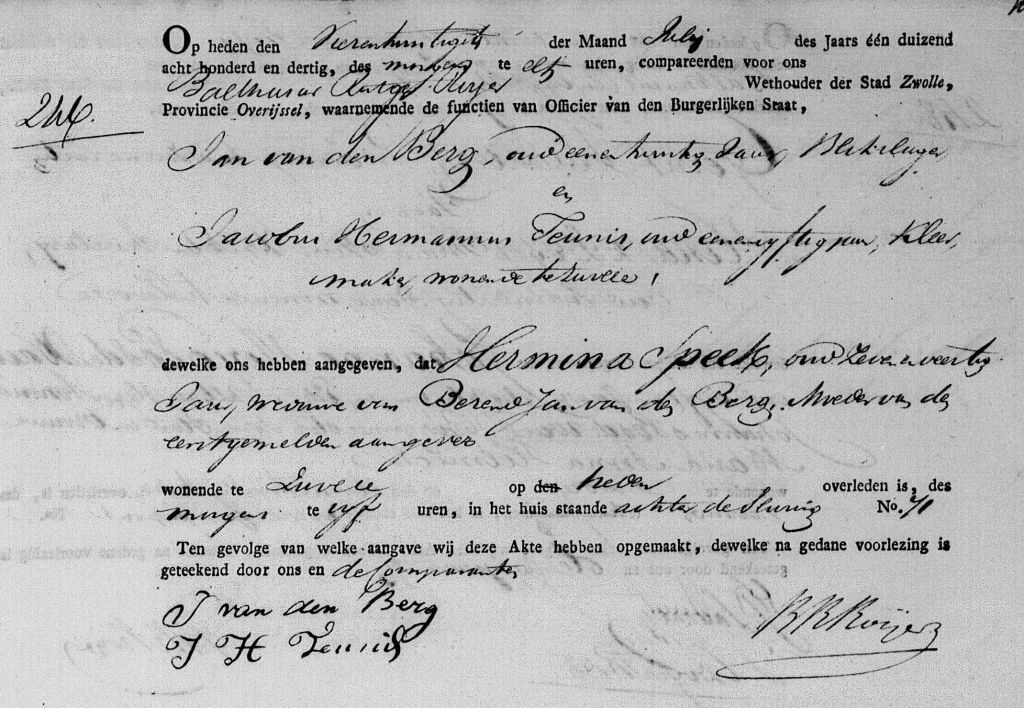 Op heden den Vierentwintigste der Maand Julij des Jaars één duizend
acht honderd en dertig, des morgens te elf uren, compareerden voor ons
Balthasar Rutger Roijer Wethouder der Stad Zwolle,
246.
Provincie Overijssel, waarnemende de functien van Officier van den Burgerlijken Staat,
Jan van den Berg, oud eenentwintig Jaar,
en
Jacobus Hermannus Teunis, oud eenenvyftig jaar, Kleer,
maker, wonende te Zwolle,
dewelke ons hebben aangegeven, dat Hermina Speek, oud Zevenenveertig
Jaar, weduwe van Berend Jan van den Berg, Moeder van den
eerstgemelden aangever
wonende te Zwolle op den heden overleden is, des
morgens te vyf uren, in het huis staande achter de No. 71
Ten gevolge van welke aangave wij deze Akte hebben opgemaakt, dewelke na gedane voorlezing is
geteekend door ons en de Comparanten
J van den Berg
J H Teunis